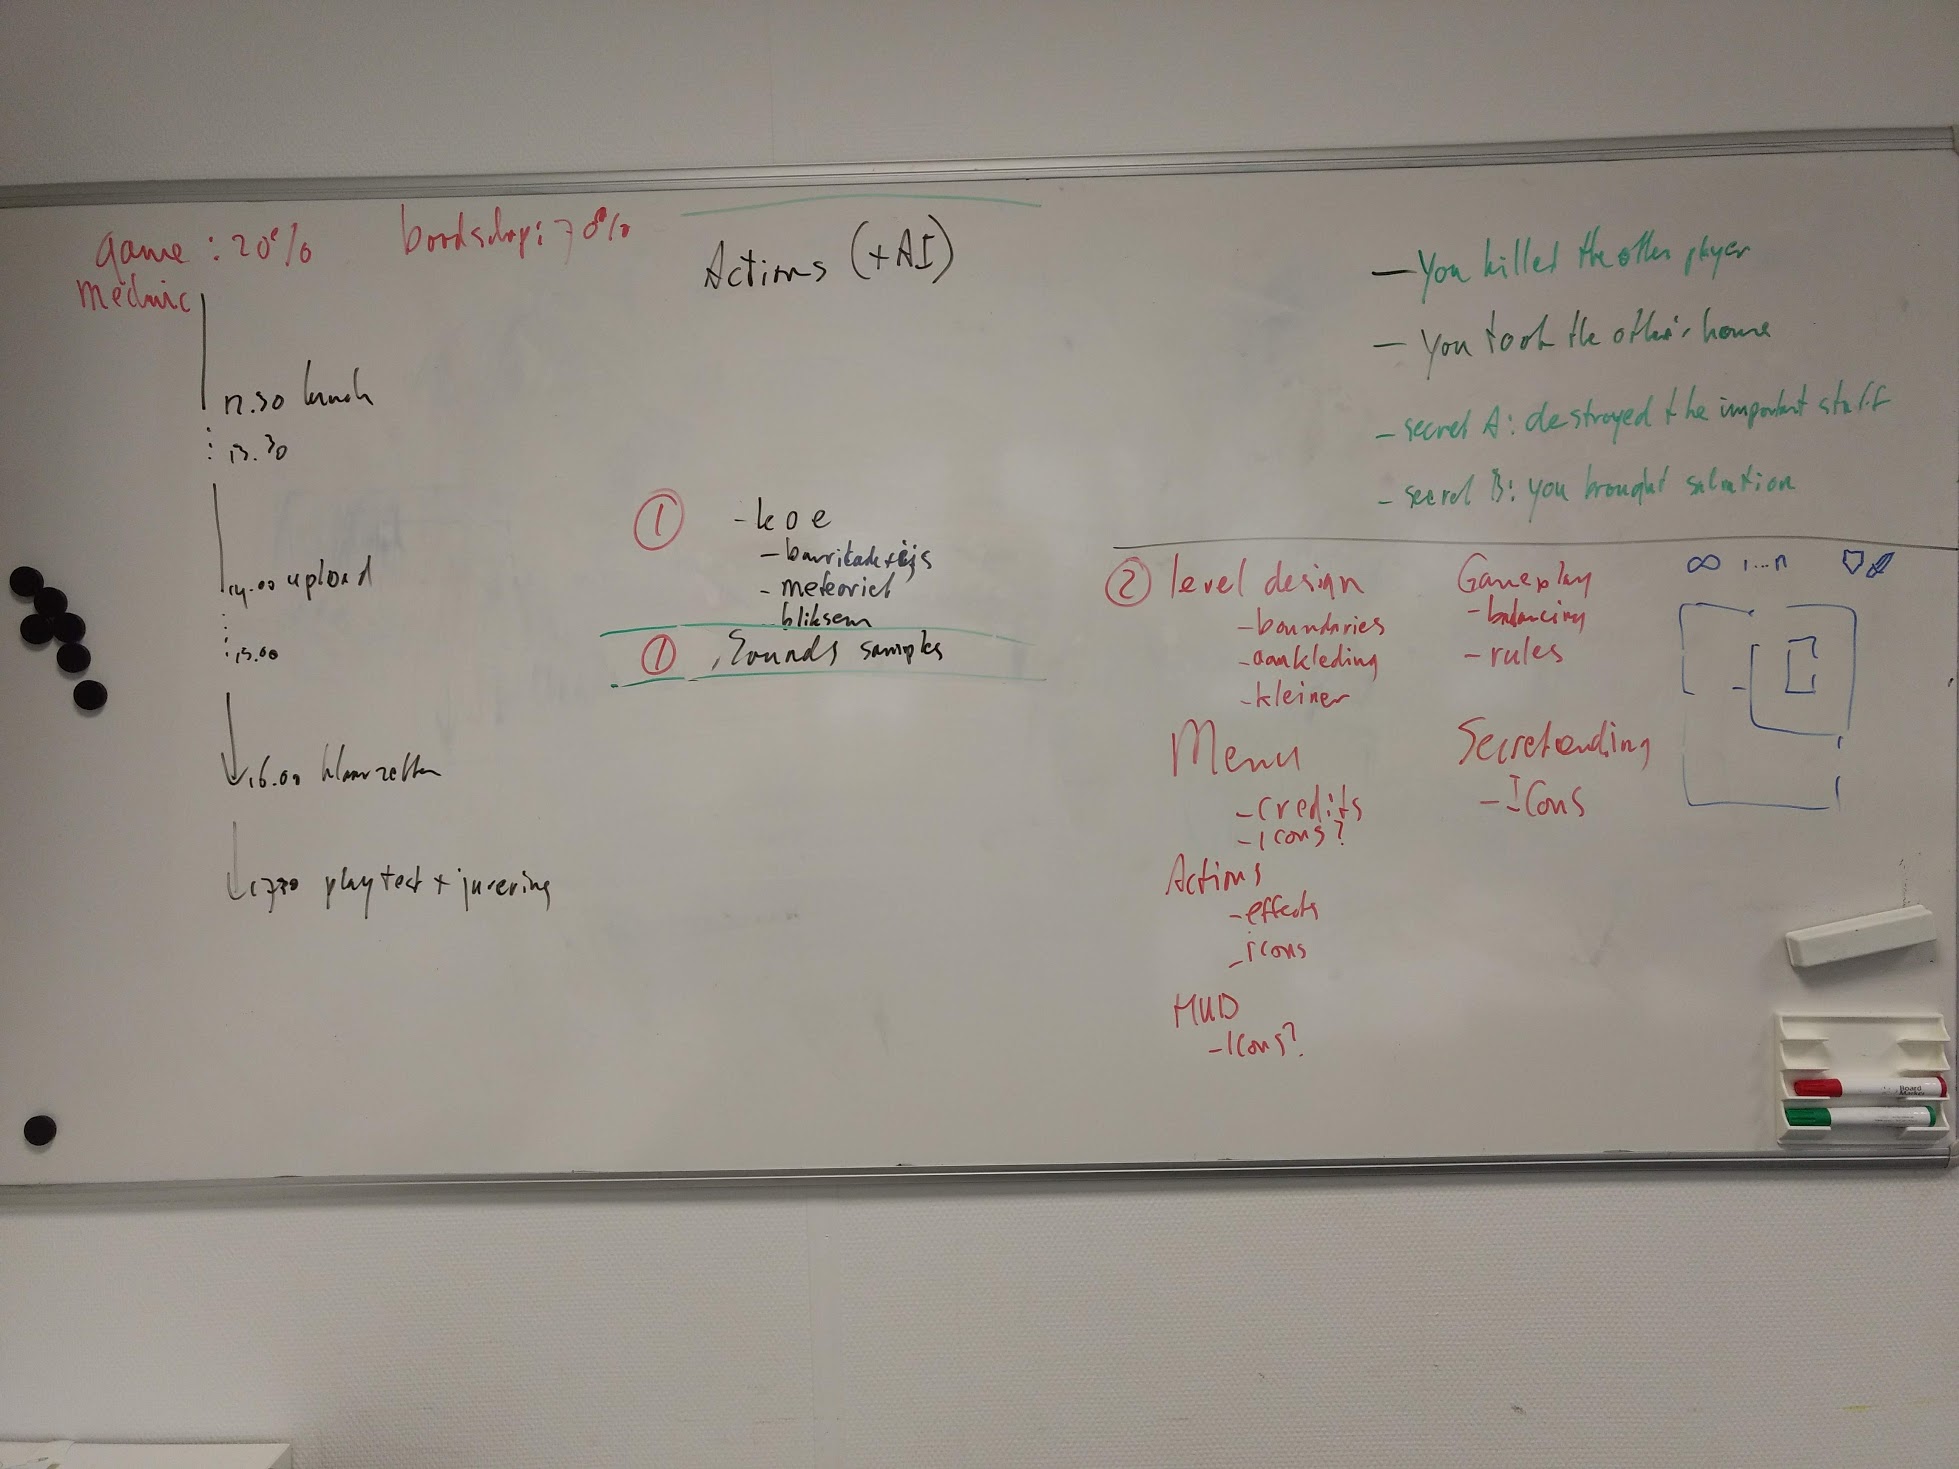 game : 20%
mechnic
boodschap: 70%
Actions (+AI)
12.30 lunch
13.30
14.00 upload
15.00
16.00 klaarzetten
1730 playtest + jurering
1
- koe
- meteoriet
- bliksem
1 Sounds samples
- You killed the other player
- You took the other's home
- secret A: destroyed the important stuff
- secret B: you brought salvation
2 level design
- boundaries
- aankleding
- kleiner
Menu
- credits
- Icons?
Actions
- effects
- icons
HUD
- Icons?
Gameplay
- balancing
- rules
Secret ending
- Icons
∞ 1...n
Board
Marker